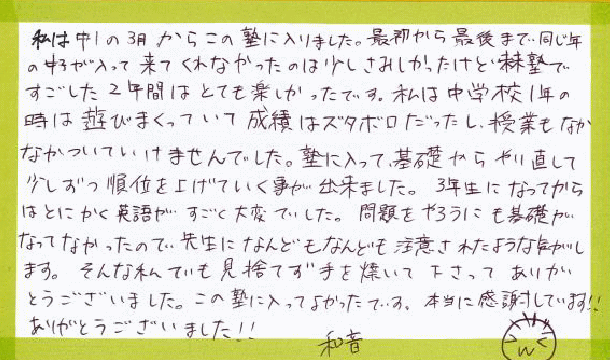 私は中1の3月からこの塾に入りました。最初から最後まで同じ年
の女子が入って来てくれなかったのは少しさみしかったけど林塾で
すごした2年間はとても楽しかったです。私は中学校1年の
時は遊びまくっていて成績はズタボロだったし、授業もなか
なかついていけませんでした。塾に入って、基礎からやり直して
少しずつ順位を上げていく事が出来ました。3年生になってから
はとにかく英語がすごく大変でした。問題をやろうにも基礎が
なってなかったので先生になんどもなんども注意されたような気がし
ます。そんな私でも見捨てず手を焼いて下さってありが
とうございました。この塾に入ってよかったです。本当に感謝しています!!
ありがとうございました!!
和音